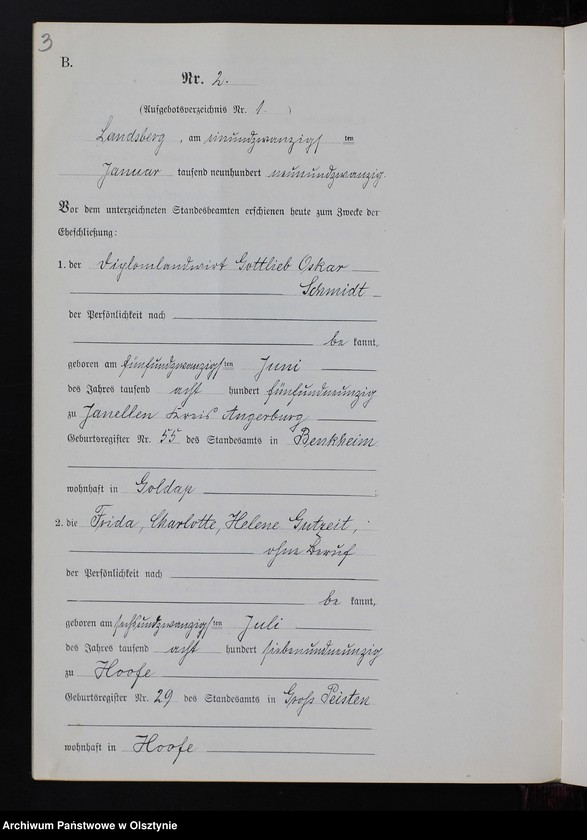 3
B.
Nr. 2.
(Aufgebotsverzeichnis Nr. 1. )
Landsberg, am einundzwanzigsten
Januar tausend neunhundert neunundzwanzig.
Vor dem unterzeichneten Standesbeamten erschienen heute zum Zwecke der
Eheschließung:
1. der Diplomlandwirt Gottlieb Oskar
Schmidt
der Persönlichkeit nach
be kannt,
geboren am fünfundzwanzigsten Juni
des Jahres tausend acht hundert fünfundneunzig
zu Janellen Kreis Angerburg
Geburtsregister Nr. 55 des Standesamts in Benkheim
wohnhaft in Goldap ;
2. die Frida, Charlotte, Helene Gutzeit,
ohne Beruf
der Persönlichkeit nach
be kannt,
geboren am sechsundzwanzigsten Juli
des Jahres tausend acht hundert siebenundneunzig
zu Hoofe
Geburtsregister Nr. 29 des Standesamts in Groß Peisten
wohnhaft in Hoofe
Archiwum Państwowe w Olsztynie